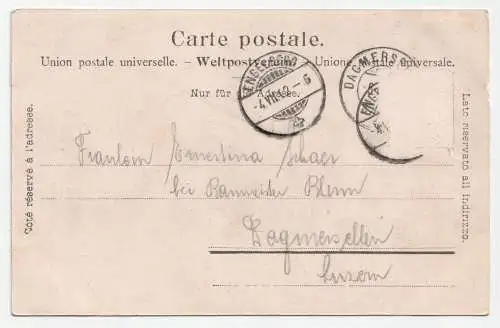 Carte postale.
Union postale universelle. – Weltpostverein. – Unione postale universale.
Nur für die Adresse.
ENGELBERG
-4.VII.02.-6
DAGMERS
Côté réservé à l'adresse.
Lato riservato all'indirizzo.
Fraulein Ernestina Schaer
bei Baumeister Blum
Dagmersellen
Luzern